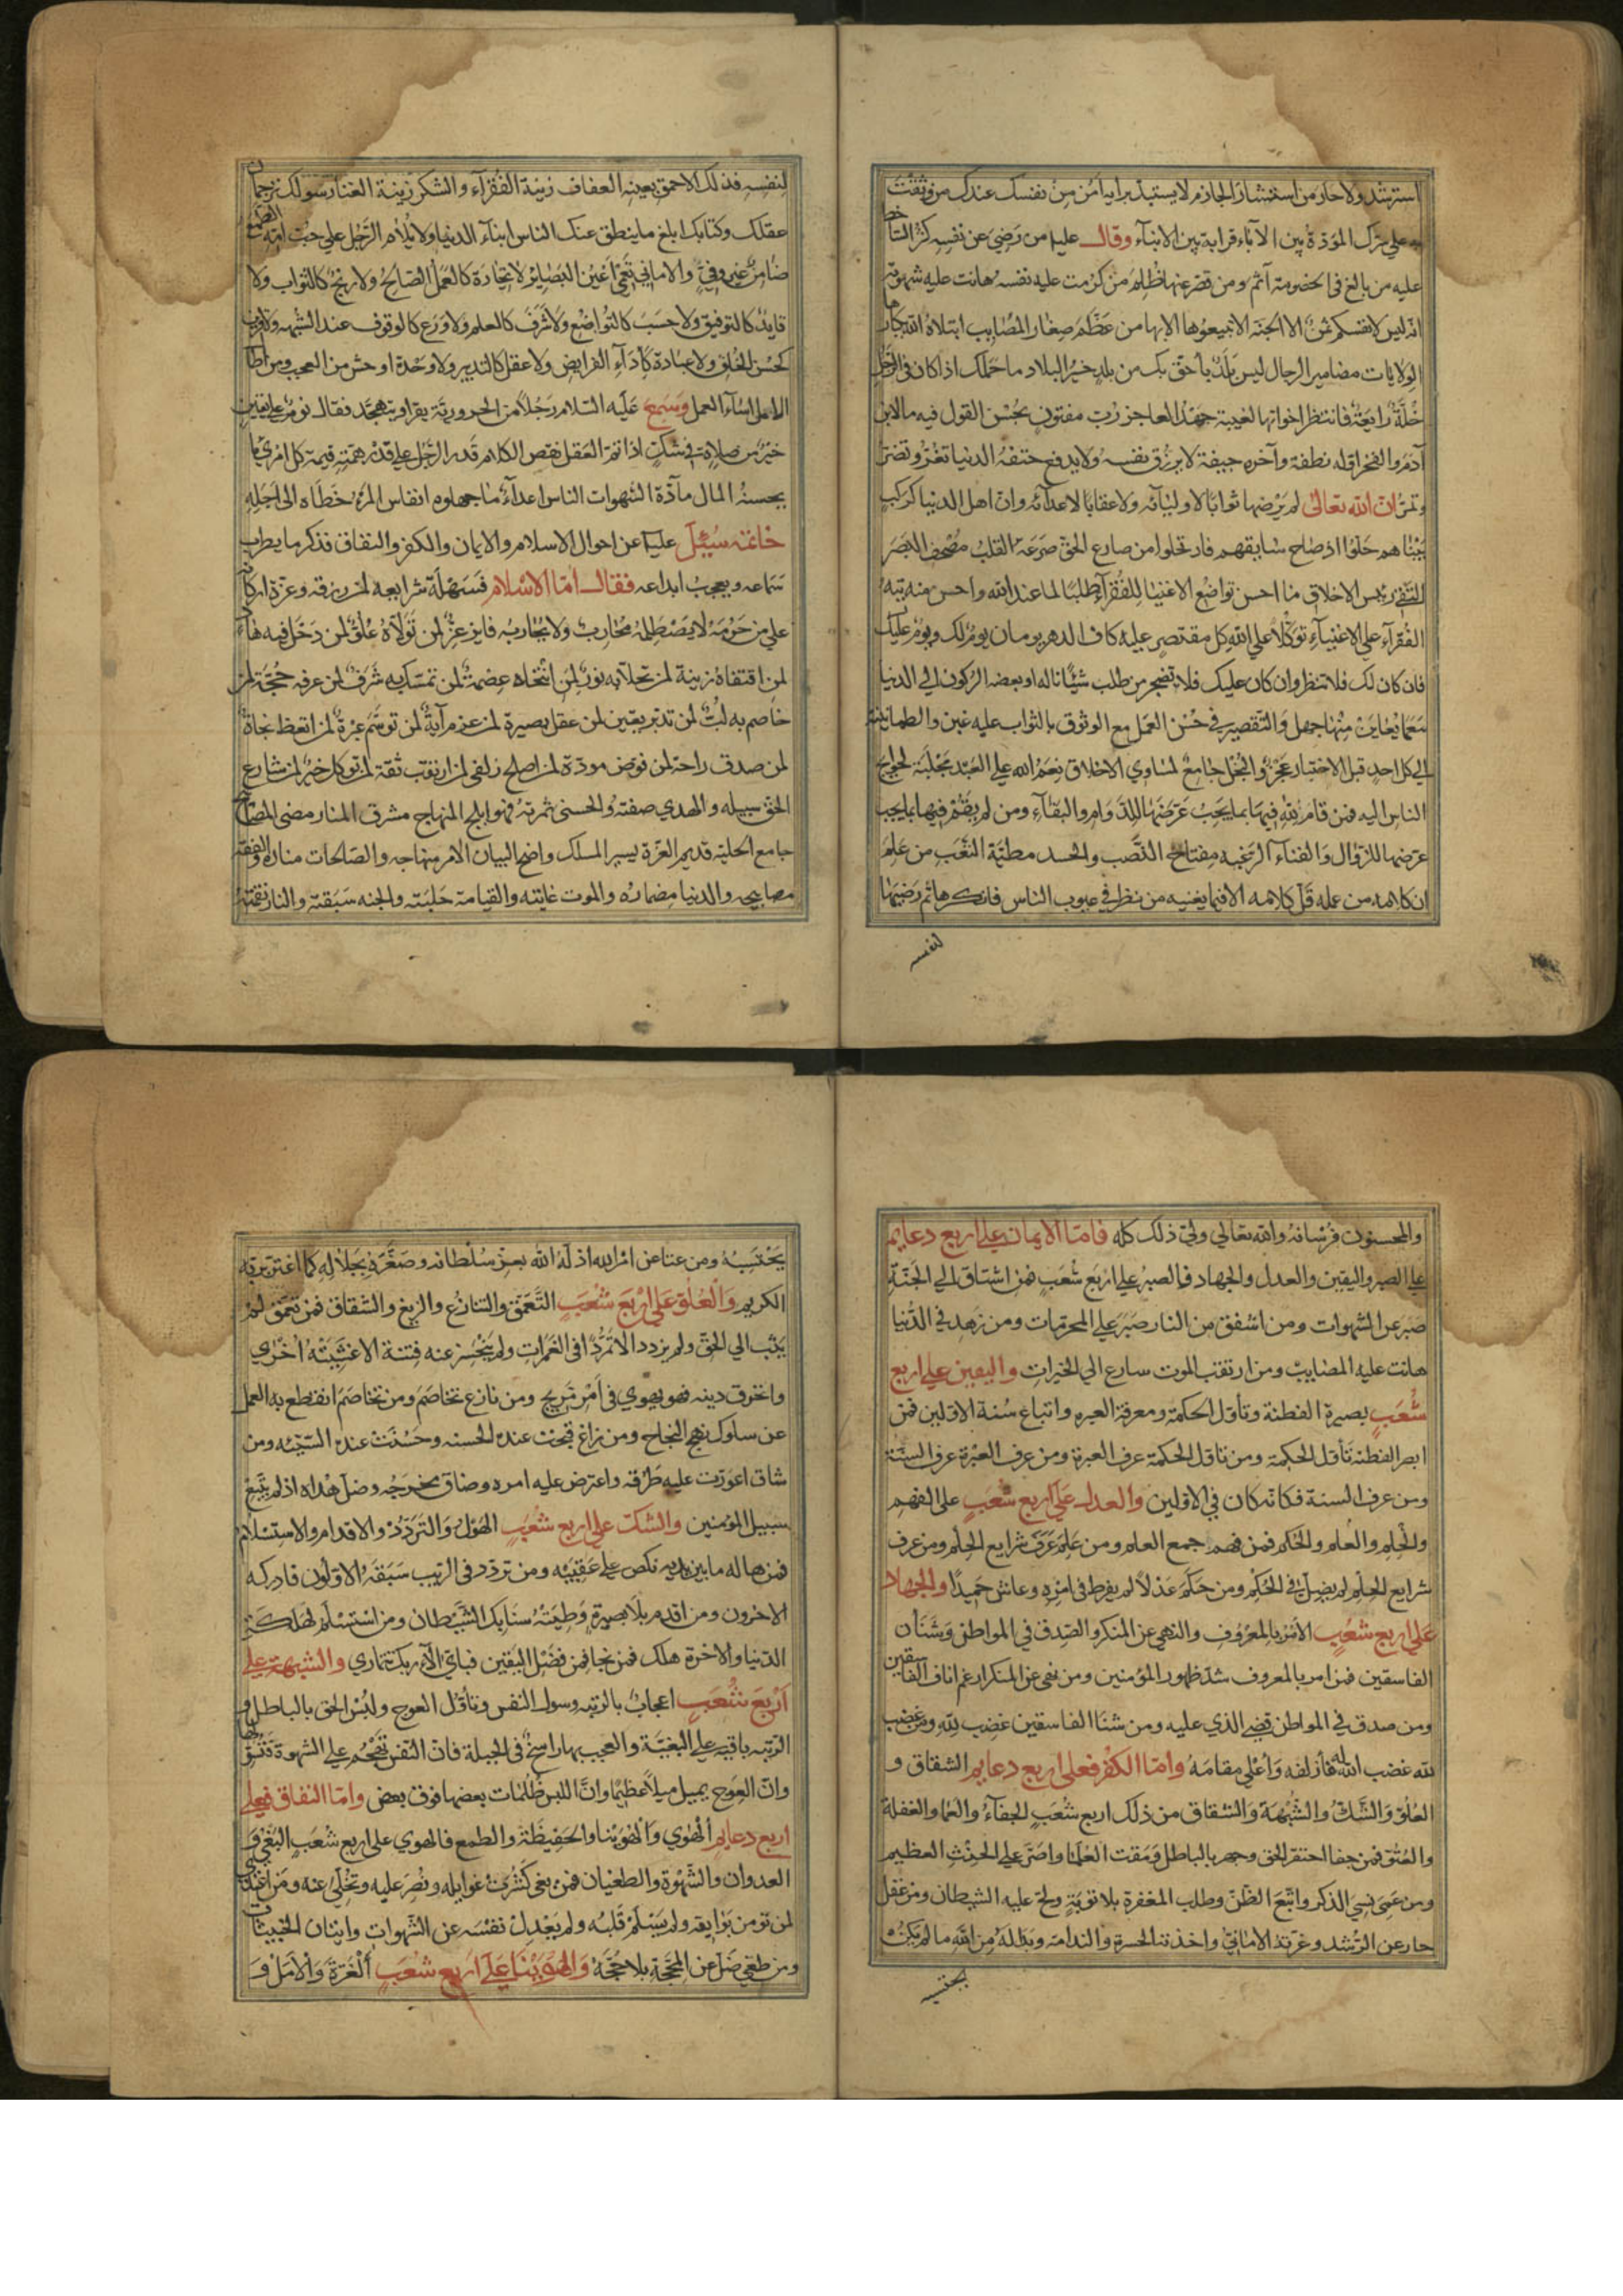 استرشد ولا حار من استشار الحازم لا يستبد برايه آمن من نفسك عندك من وثقت
به على سرك المودة بين الآباء قرابة بين الابناء وقال عليه من رضي عن نفسه كثر الساخط
عليه من بالغ في الخصومة آثم ومن قصر عنها ظلم من كرمت عليه نفسه هانت عليه شهوته
انه ليس لانفسكم ثمن الا الجنة الا تبيعوها الا بها من عظم صغار المصايب ابتلاه الله بكبارها
الولايات مضامير الرجال ليس بلد باحق بك من بلد خير البلاد ما حملك اذا كان في الرجل
خلة رايعة فانتظر اخواتها الغيبة جهد العاجز رب مفتون بحسن القول فيه ما لابن
آدم والفخر اوله نطفة وآخره جيفة لا يرزق نفسه ولا يدفع حتفه الدنيا تغر وتضر
وتمر ان الله تعالى لم يرضها ثوابا لاوليائه ولا عقابا لاعدائه وان اهل الدنيا كركب
بيناهم حلوا اذ صاح سايقهم فارتحلوا من صارع الحق صرعه القلب مصحف البصر
التقى رئيس الاخلاق ما احسن تواضع الاغنيا للفقراء طلبا لما عند الله واحسن منه تيه
الفقراء على الاغنياء توكلا على الله كل مقتصر عليه كاف الدهر يومان يوم لك ويوم عليك
فان كان لك فلا تنظر وان كان عليك فلا تضجر من طلب شيئا ناله او بعضه الركون الى الدنيا
مع ما يعاين منها جهل والتقصير في حسن العمل مع الوثوق بالثواب عليه غبن والطمانينة
الى كل احد قبل الاختبار عجز والبخل جامع لمساوي الاخلاق نعم الله على العبد مجلبة لحوايج
الناس اليه فمن قام لله فيها بما يجب عرضها للدوام والبقاء ومن لم يقم فيها بما يجب
عرضها للزوال والفناء الرغبه مفتاح النصب والحسد مطية التعب من علم
ان كلامه من عمله قل كلامه الا فيما يعنيه من نظر في عيوب الناس فانكرها ثم رضيها
لنفسه
لنفسه فذلك الاحمق بعينه العفاف زينة الفقراء والشكر زينة الغنا رسولك ترجمان
عقلك وكتابك ابلغ ما ينطق عنك الناس ابناء الدنيا ولا يلام الرجل على حب امه الطمع
ضامن غير وفي والاماني تعمي اعين البصاير لا تجارة كالعمل الصالح ولا ربح كالثواب ولا
قايد كالتوفيق ولا حسب كالتواضع ولا شرف كالعلم ولا ورع كالوقوف عند الشبهه ولا قرين
كحسن الخلق ولا عبادة كاداء الفرايض ولا عقل كالتدبير ولا وحدة اوحش من العجب ومن اطال
الامل اساء العمل وسمع عليه السلام رجلا من الحرورية يقرا ويتهجد فقال نوم على يقين
خير من صلاة في شك اذا تم العقل نقص الكلام قدر الرجل على قدر همته قيمة كل امرئ ما
يحسنه المال مادة الشهوات الناس اعداء ما جهلوه انفاس المرء خطاه الى اجله
خاتمه سئل عليه عن احوال الاسلام والايمان والكفر والنفاق فذكر ما يطرب
سماعه ويعجب ابداعه فقال اما الاسلام فسهلة شرايعه لمن رزقه وعزة اركانه
على من حومه لا يصطلمه محارب ولا يحاربه فايز عز لمن تولاه علق لمن دخل فيه هداء
لمن اقتفاه زينة لمن تحلا به نور لمن انتحاه عصمة لمن تمسك به شرف لمن عرفه حجة لمن
خاصم به لب لمن تدبر يقين لمن عقل بصيرة لمن عزم آية لمن توسم عبرة لمن اتعظ نجاة
لمن صدق راحة لمن فوض مودة لمن اصلح زلفى لمن ارتقب ثقة لمن توكل خير لمن سارع
الحق سبيله والهدي صفته والحسنى ثمرته فهو ابلج المنهاج مشرق المنار مضي المصباح
جامع الحلية قديم العزة يسير المسلك واضح البيان الامر منهاجه والصالحات مناره والفقه
مصابيحه والدنيا مضماره والموت غايته والقيامة حلبته والجنه سبقته والنار نقمته
والمحسنون فرسانه والله تعالى ولي ذلك كله فاما الايمان على اربع دعايم
على الصبر واليقين والعدل والجهاد فالصبر على اربع شعب فمن اشتاق الى الجنة
صبر عن الشهوات ومن اشفق من النار صبر على المحرمات ومن زهد في الدنيا
هانت عليه المصايب ومن ارتقب الموت سارع الى الخيرات واليقين على اربع
شعب بصيرة الفطنة وتاول الحكمة ومعرفة العبره واتباع سنة الاولين فمن
ابصر الفطنة تأول الحكمة ومن تاول الحكمة عرف العبرة ومن عرف العبرة عرف السنة
ومن عرف السنة فكانه كان في الاولين والعدل على اربع شعب على الفهم
والحلم والعلم والحكم فمن فهم جمع العلم ومن علم عرف شرايع الحلم ومن عرف
شرايع الحلم لم يضل في الحكم ومن حكم عدلا لم يفرط في امره وعاش حميدا والجهاد
على اربع شعب الامر بالمعروف والنهي عن المنكر والصدق في المواطن وشنأن
الفاسقين فمن امر بالمعروف شد ظهور المؤمنين ومن نهى عن المنكر ارغم اناف الفاسقين
ومن صدق في المواطن قضي الذي عليه ومن شنا الفاسقين غضب لله ومن غضب
لله غضب الله له فازلفه واعلى مقامه واما الكفر فعلى اربع دعايم الشقاق و
الغلو والشك والشبهة والشقاق من ذلك اربع شعب الجفاء والعما والغفلة
والعتو فمن جفا احتقر الحق وجهر بالباطل ومقت العلما واصر على الحنث العظيم
ومن عمى نسي الذكر واتبع الظن وطلب المغفرة بلا توبة ولح عليه الشيطان ومن غفل
حار عن الرشد وغرته الاماني واخذته الحسرة والندامة وبدا له من الله ما لم يكن
يحتسبه
يحتسبه ومن عتا عن امر الله اذله الله بعز سلطانه وصغره بجلاله كما اغتر بربه
الكريم والغلو على اربع شعب التعمق والتنازع والزيغ والشقاق فمن تعمق لم
ينب الي الحق ولم يزدد الا تمردا في الغمرات ولم ينحسر عنه فتنة الا غشيته اخرى
وانخرق دينه فهو يهوي في امر مريج ومن نازع تخاصم ومن تخاصم انقطع به العمل
عن سلوك نهج النجاح ومن زاغ قبحت عنده الحسنه وحسنت عنده السيئه ومن
شاق اعورت عليه طرقه واعترض عليه امره وضاق مخرجه وضل هداه اذ لم يتبع
سبيل المؤمنين والشك على اربع شعب الهول والتردد والاقدام والاستسلام
فمن هاله ما بين يديه نكص على عقبيه ومن تردد في الريب سبقه الاولون فادركه
الاخرون ومن اقدم بلا بصيرة وطيته سنابك الشيطان ومن استسلم لهلكة
الدنيا والاخرة هلك فمن نجا فمن فضل اليقين فباي آلاء ربك تتماري والشبهة على
اربع شعب اعجاب بالزينه وسول النفس وتأول العوج ولبس الحق بالباطل و
وان العوج يميل ميلا عظيما وان اللبس ظلمات بعضها فوق بعض واما النفاق فعلى
اربع دعايم الهوي والهوينا والحفيظة والطمع فالهوي على اربع شعب البغي و
العدوان والشهوة والطغيان فمن بغى كثرت غوايله ونصر عليه وتخلى عنه ومن اعتدى
لمن تومن بوايقه ولم يسلم قلبه ولم يعدل نفسه عن الشهوات واتيان الخبيثات
ومن طغى ضل عن المحجة بلا حجة والهوينا على اربع شعب الغرة والامل و